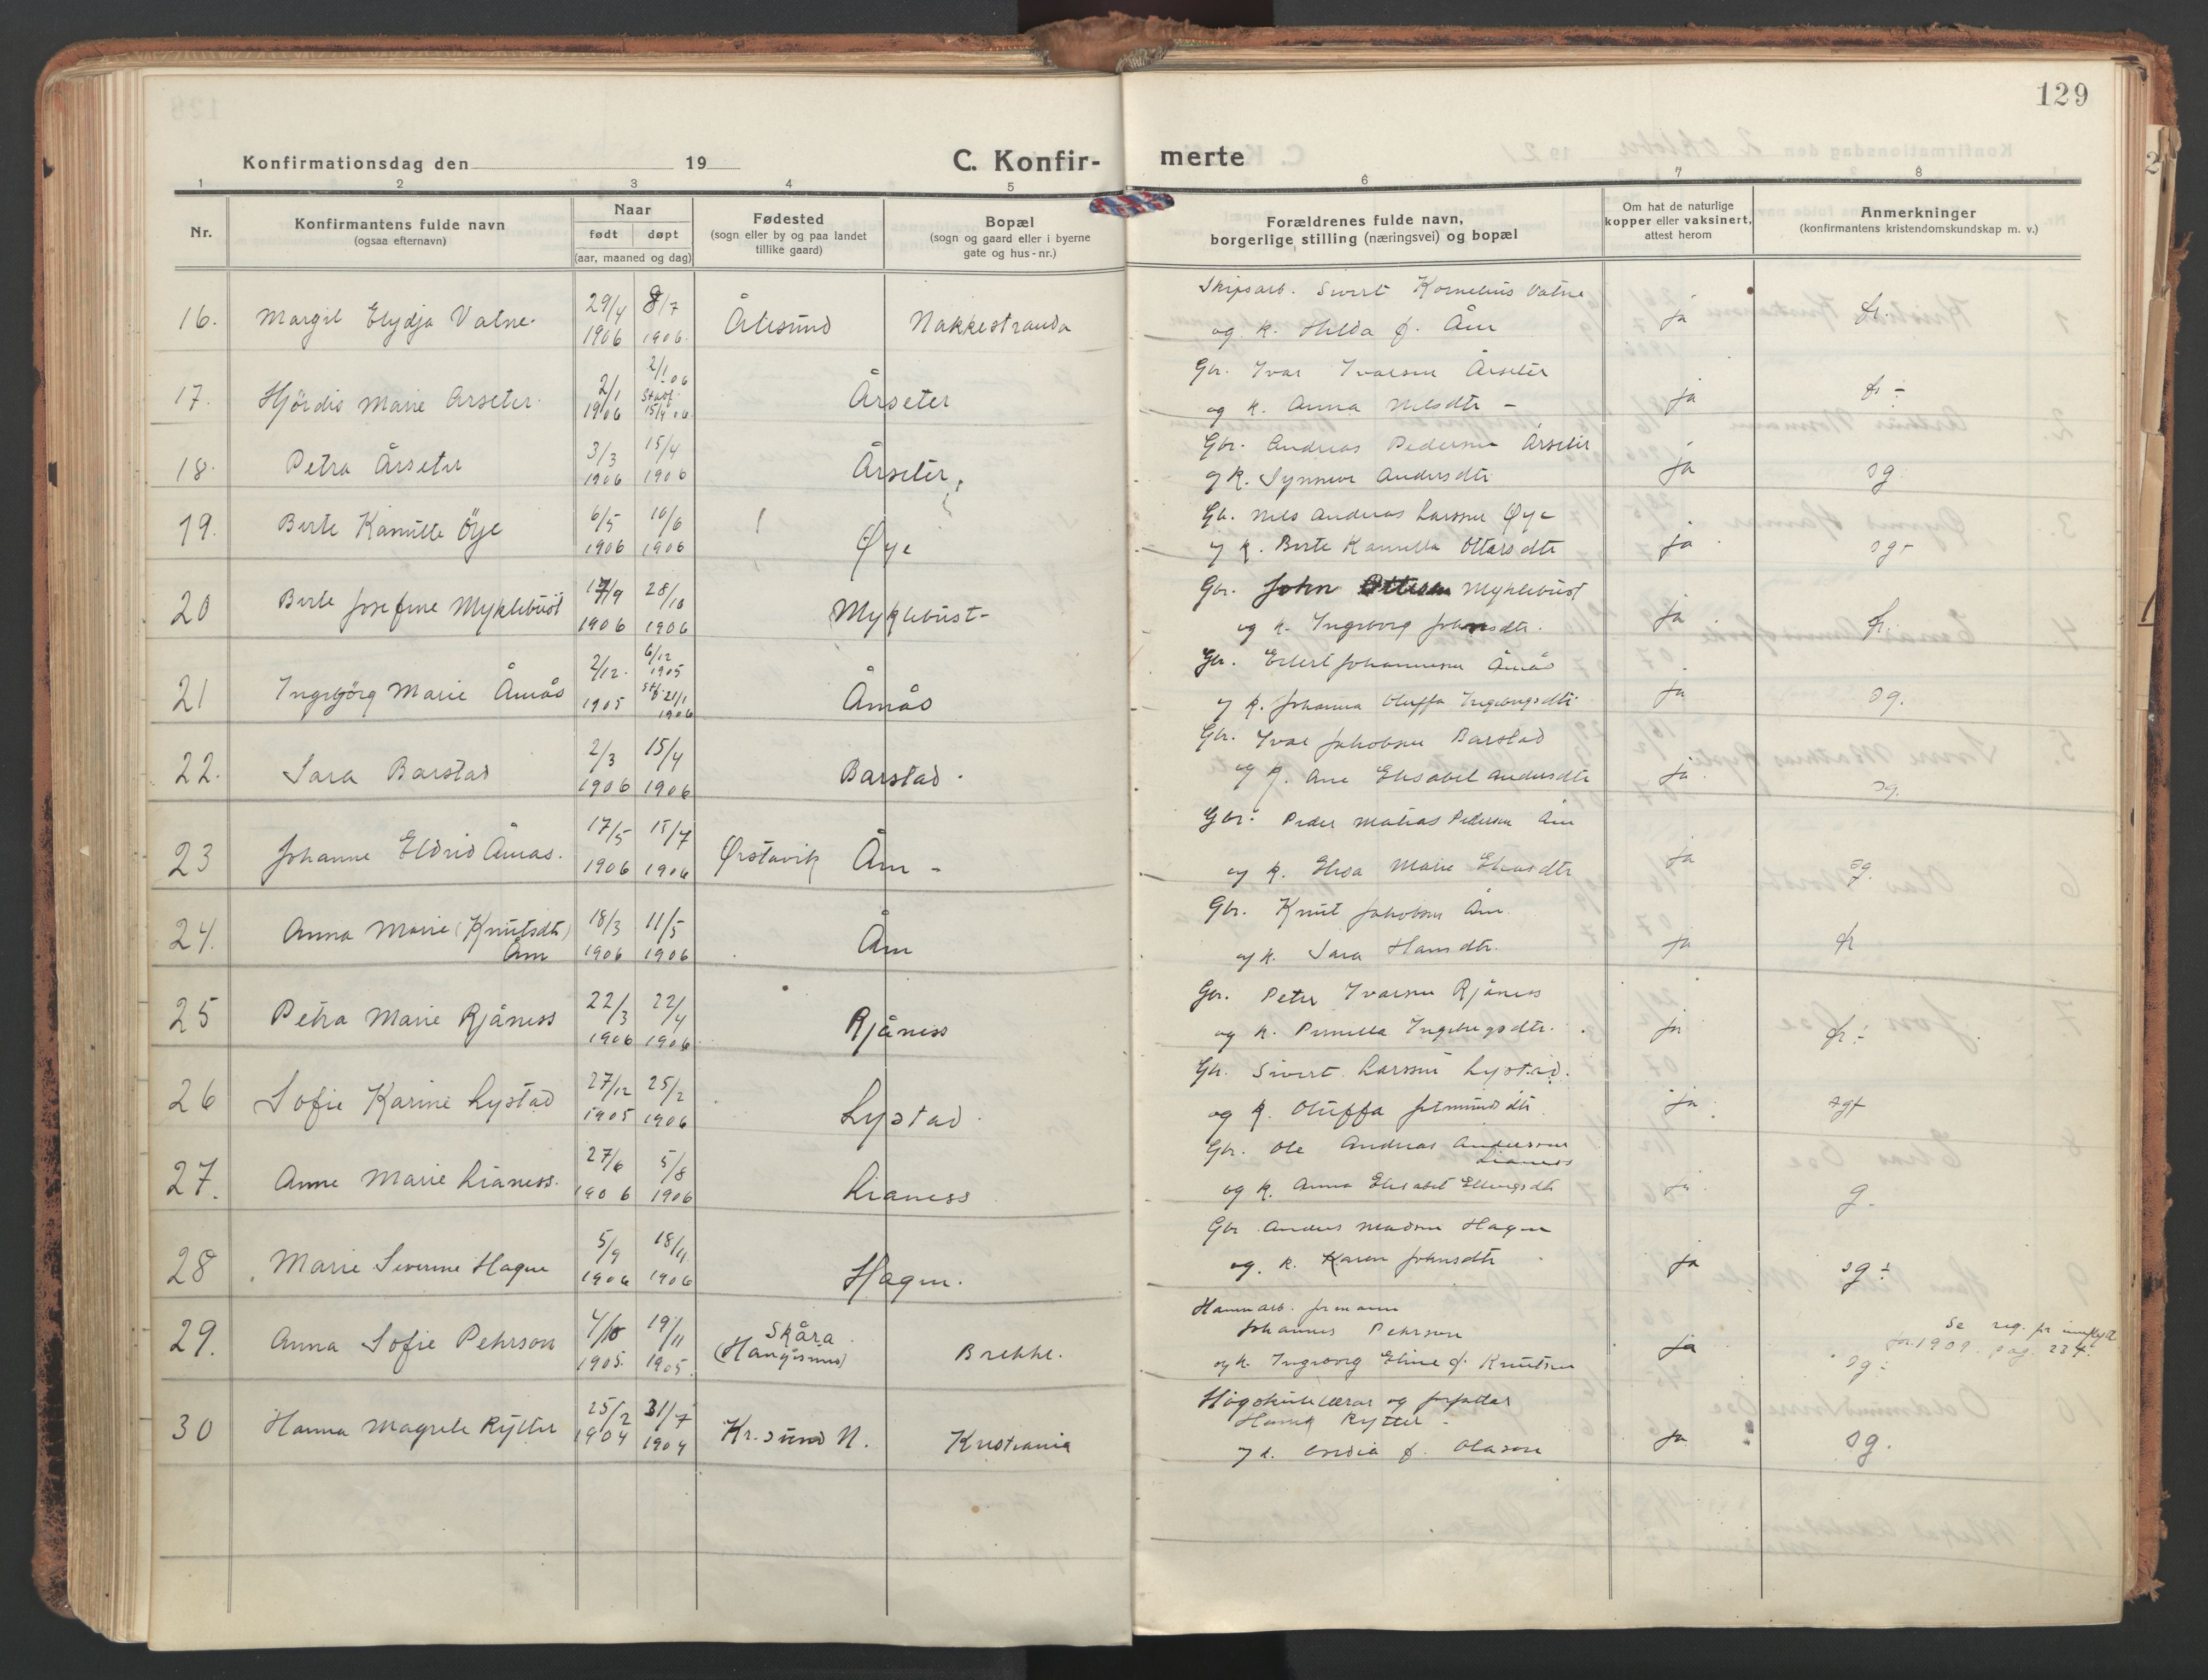 129
Konfirmationsdag den 19
C. Konfir-
merte
1 2 3 4 5 6 7 8
Nr.
Konfirmantens fulde navn
(ogsaa efternavn)
Naar
født døpt
(aar, maaned og dag)
Fødested
(sogn eller by og paa landet
tillike gaard)
Bopæl
(sogn og gaard eller i byerne
gate og hus-nr.)
Forældrenes fulde navn,
borgerlige stilling (næringsvei) og bopæl
Om hat de naturlige
kopper eller vaksinert,
attest herom
Anmerkninger
(konfirmantens kristendomskundskap m. v.)
Skipsarb. Sivert Kornelius Vatne
16. Margit Vatne. 29/4 8/7 Ålesund Nakkestranda ja
1906 1906. og k. Hilda f. Åm
2/1 06 Gbr. Ivar Ivarsen Årseter
17. Hjördis Marie Årseter. 2/1 Årseter ja
1906 15/4 06 og k. Anna Nilsdtr -
18. Petra Årseter 3/3 15/4 Årseter Gbr. Andreas Pedersen Årseter ja sg
1906 1906 og k. Synneve Andersdtr
19. Berte Kamille Öye 6/5 10/6 Øye Gbr. Nils Andreas Larssen Øye
1906 1906 og k. Berte Kamilla Ottarsdtr ja sg+
20 Berte Josefine Myklebust 17/9 28/10 Myklebust- Gbr. John Myklebust ja
1906 1906 og k. Ingeborg Johnsdtr.
21 Ingebjörg Marie Åmås 2/12. 6/12 1905 Åmås Gbr. Johannesen Åmås
1905 stf. 21/1 1906 og k. Johanna Oluffa Ingebrigtsdtr ja sg.
22. Sara Barstad 2/3 15/4 Barstad. Gbr. Ivar Jakobsen Barstad
1906 1906 og k. Ane Elisabet Andersdtr ja sg.
23 Johanne Eldrid Åmås. 17/5 15/7 Ørstavik Åm - Gbr. Peder Matias Pedersen Åm
1906 1906 og k. Elisa Marie Eliasdtr ja sg.
24. Anna Marie (Knutsdtr) 18/3 11/5 Åm Gbr. Knut Jakobsen Åm.
Åm 1906 1906 og k. Sara Hansdtr. ja
25 Petra Marie Rjåness 22/3 22/4 Rjåness Gbr. Peter Ivarsen Rjåness
1906 1906 og k. Pernilla Ingebrigtsdtr. ja
26 Sofie Karine Lystad 27/12 25/2 Lystad Gbr. Sivert Larssen Lystad.
1905 1906 og k. Oluffa ja sg+
27. Anne Marie Lianess. 27/6 5/8 Lianess Gbr. Ole Andreas Anderssen
Lianess
1906 1906 og k. Anna Elisabet Ellingsdtr ja g.
28 Marie Severine Hagen 5/9 18/11 Hagen. Gbr Anders Madsen Hagen
1906 1906 og k. Karen Johnsdtr ja sg÷
29. Anna Sofie Pehrson 4/10 19/11 Skåra Brekke. Havnarb. formann
1905. 1905. (Haugesund) Johannes Pehrson
og k. Ingeborg Eline f. Knutsen ja sg÷
Se reg. for innflytt
for 1909. pag. 234.
30 Hanna Magrete Rytter 25/2 31/7 Kr.sund N. Kristiania Högskulelærar og forfattar
1904 1904 Henrik Rytter
og k. f. Olason ja sg.